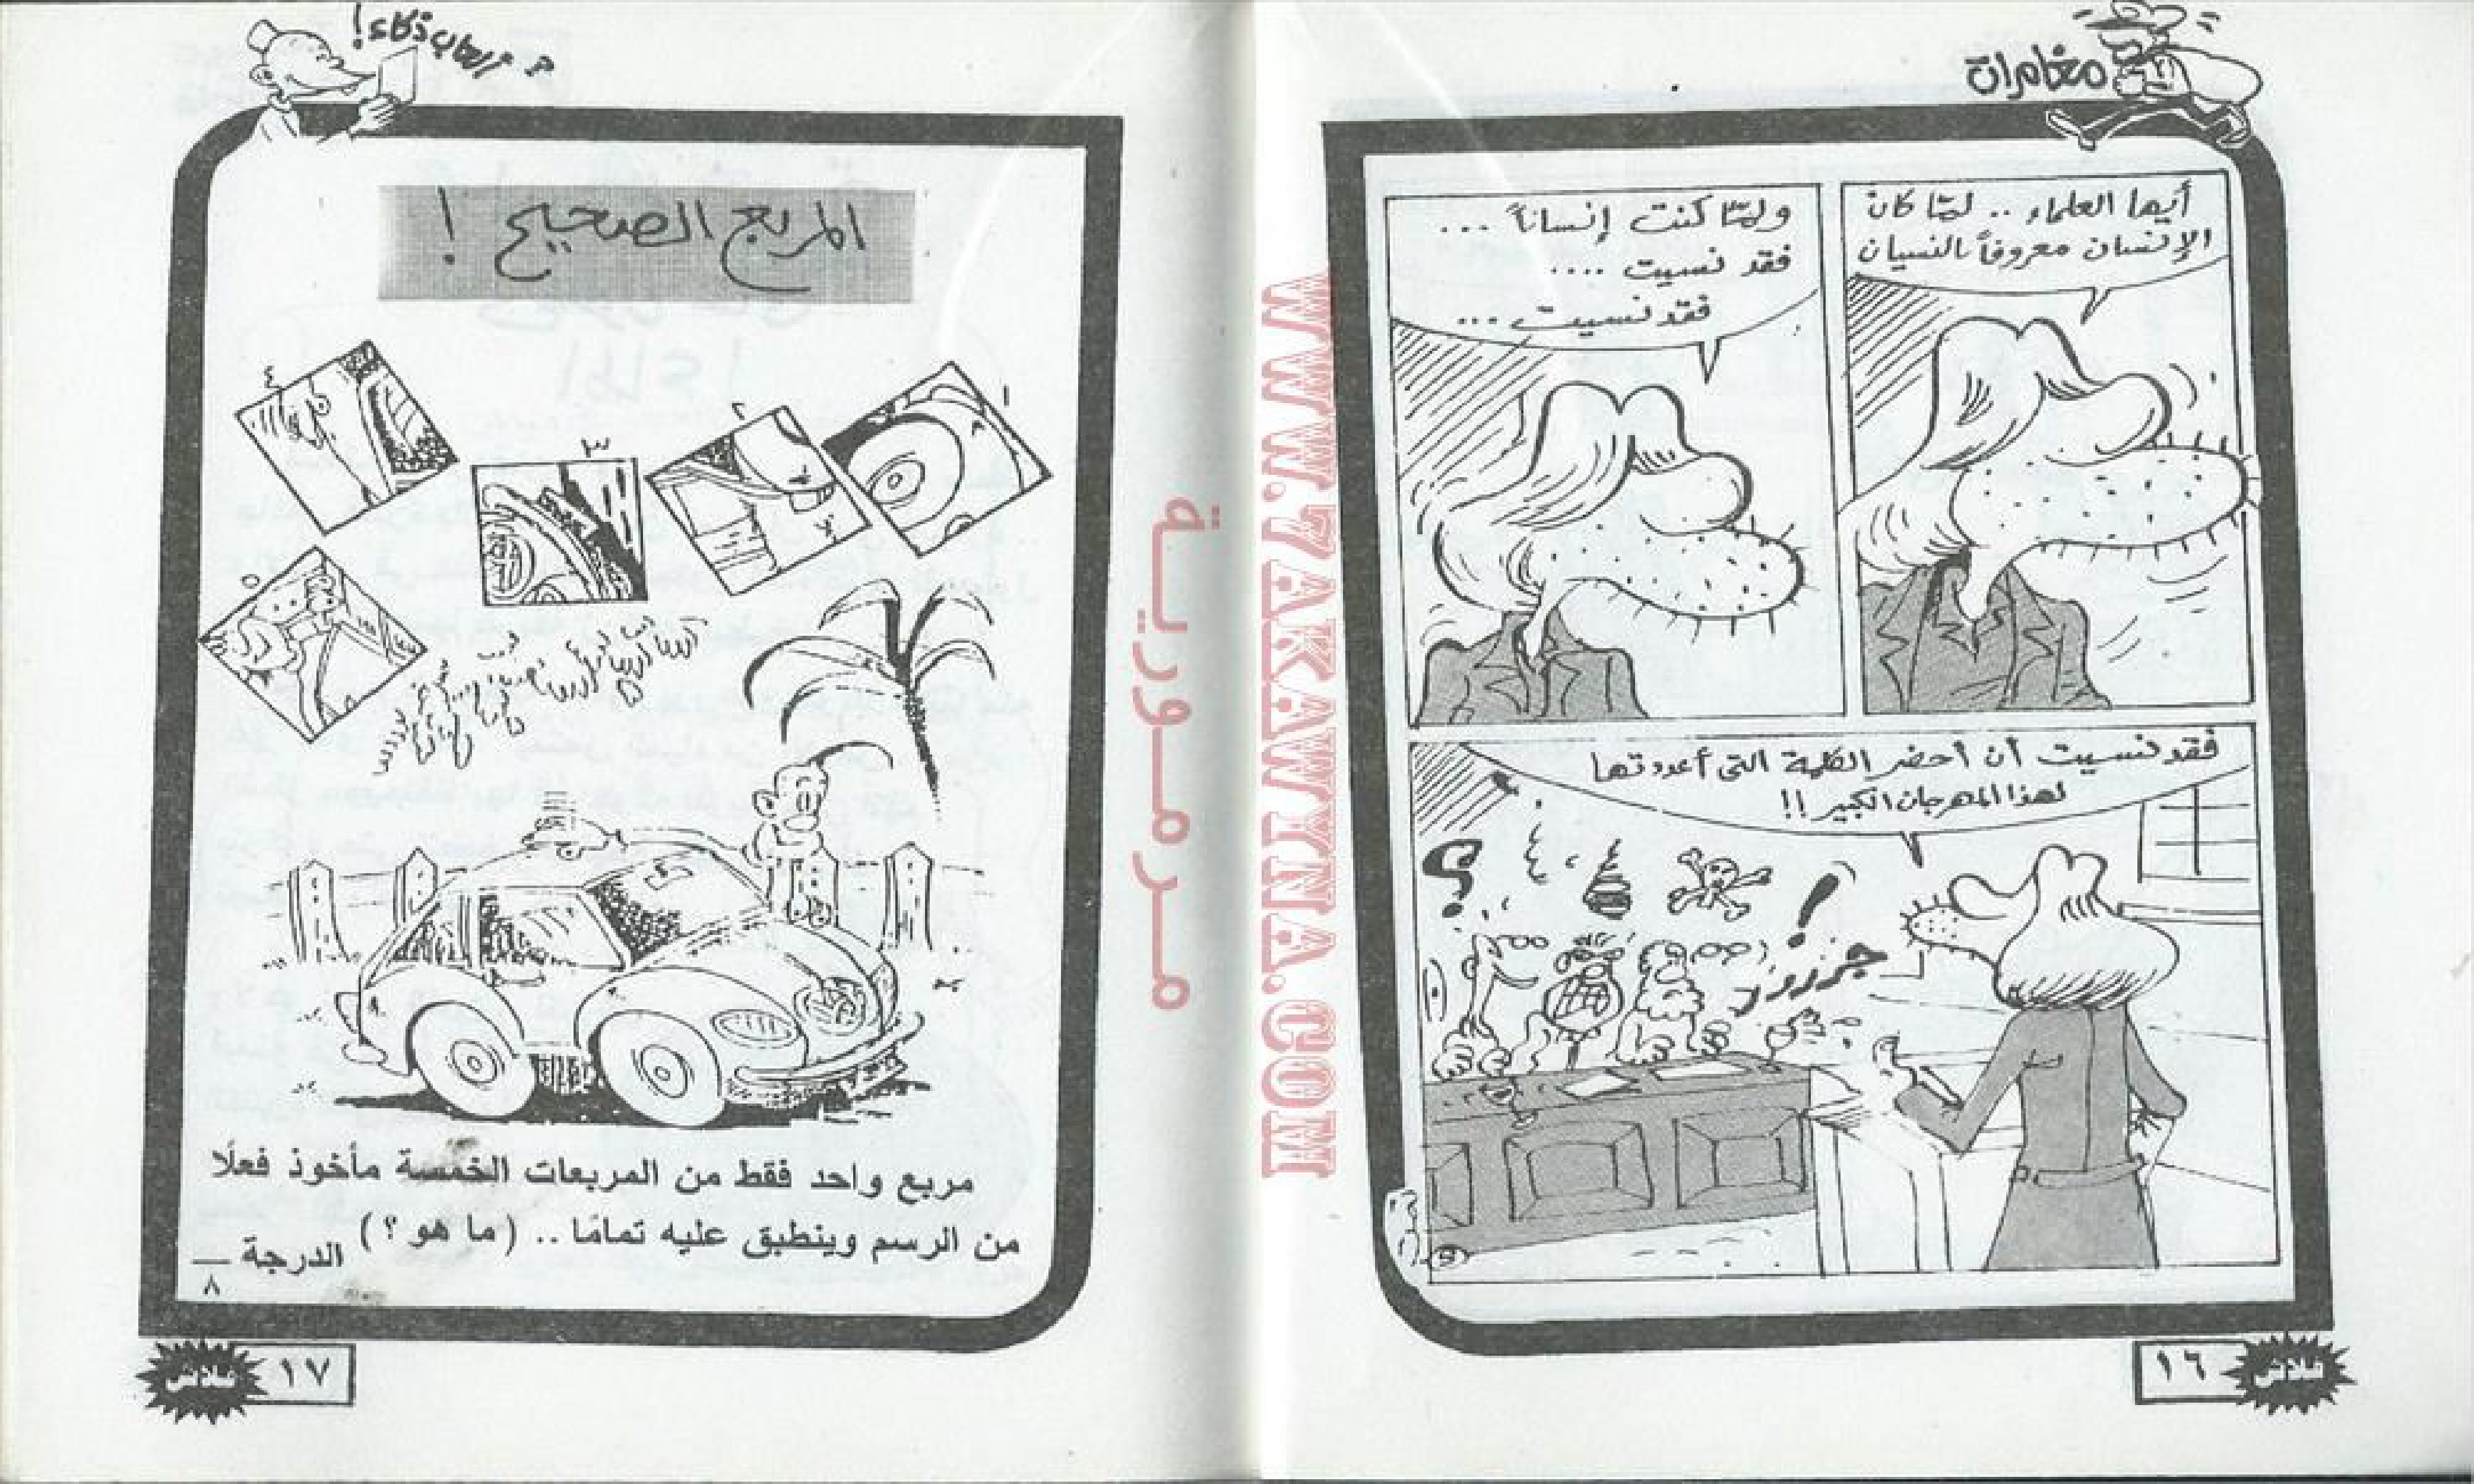 مغامرات
أيها العلماء .. لمّا كان
الإنسان معروفاً بالنسيان
ولمّا كنت إنساناً ...
فقد نسيت ....
فقد نسيت ...
فقد نسيت أن أحضر الكلمة التى أعددتها
لهذا المهرجان الكبير !!
؟
!
جررر
١٦
فلاش
WWW.7AKAWINA.COM
مرمورية
ألعاب ذكاء!
المربع الصحيح !
١
٢
٣
٤
٥
مربع واحد فقط من المربعات الخمسة مأخوذ فعلًا
من الرسم وينطبق عليه تمامًا .. ( ما هو ؟ )
الدرجة —
٨
١٧
فلاش